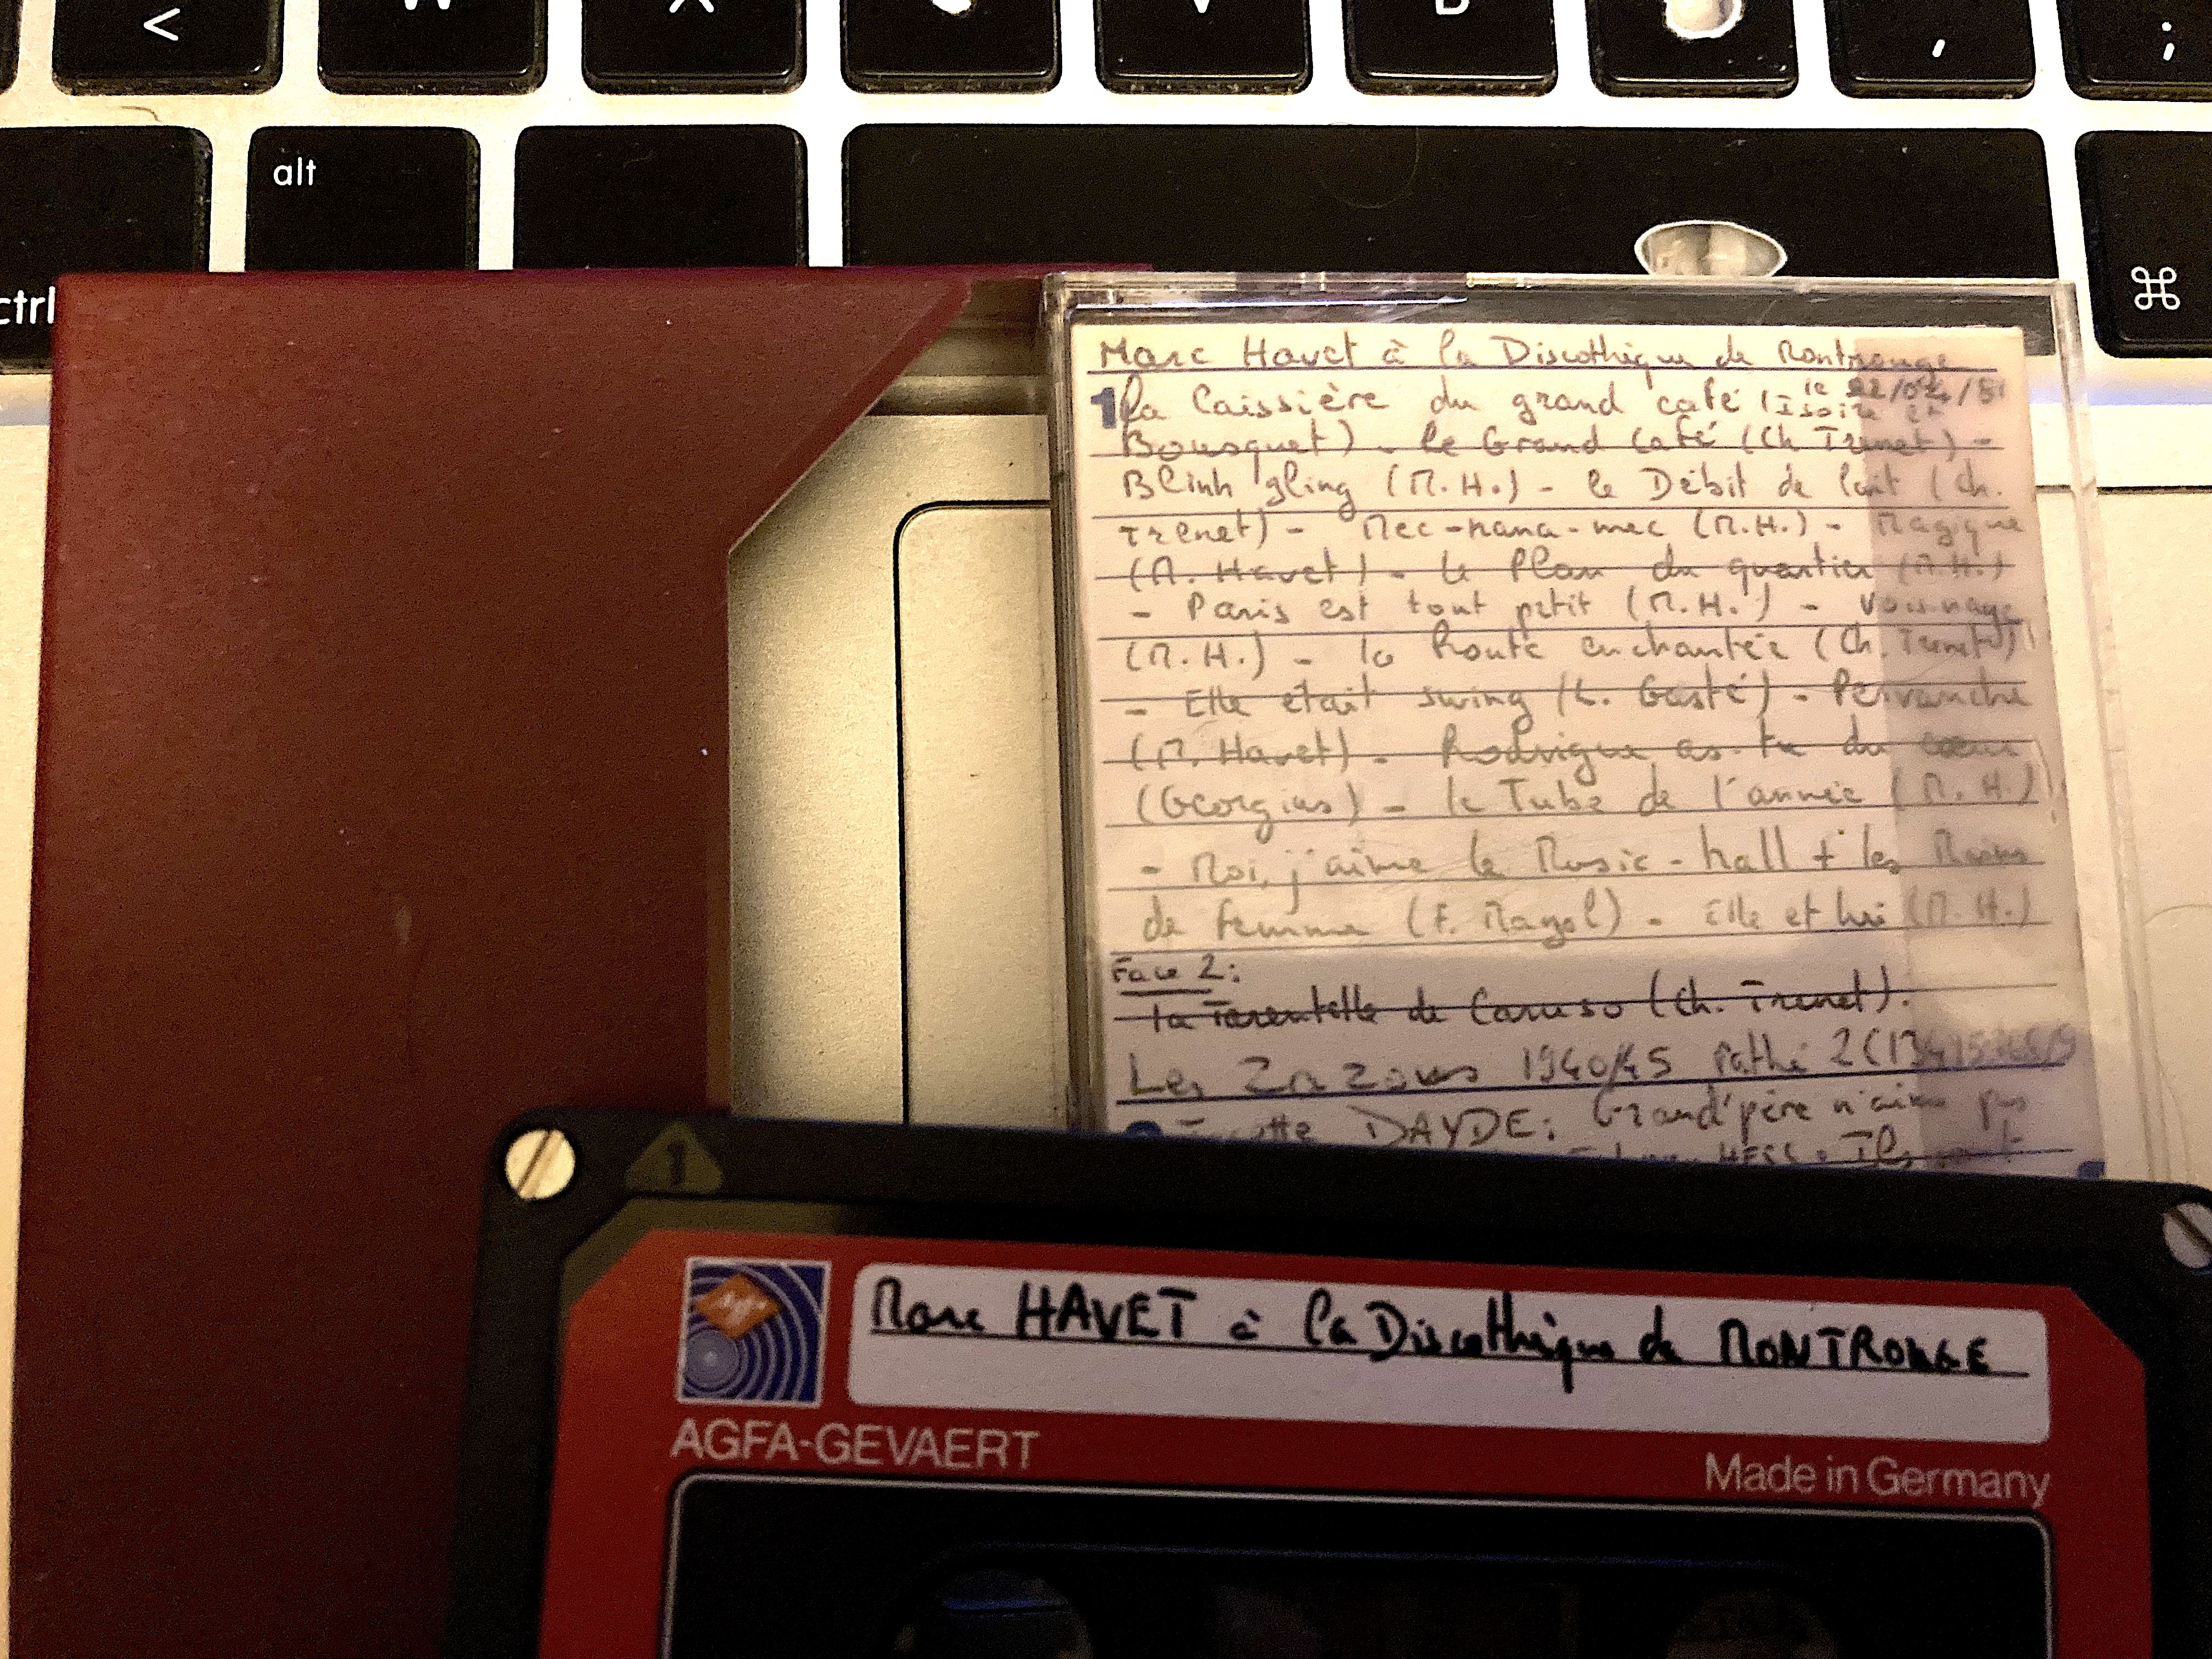 <
V
B
,
;
alt
ctrl
⌘
Marc Havet à la Discothèque de Montrouge
le 22/04/81
1 la Caissière du grand café (Isoire et
Bousquet) - le Grand Café (Ch Trenet) -
Blinh gling (M.H.) - le Débit de lait (Ch.
Trenet) - Mec-nana-mec (M.H.) - Magique
(M. Havet) - le Plan du quartier (M.H.)
- Paris est tout petit (M.H.) - Voisinage
(M.H.) - la Route enchantée (Ch. Trenet)
- Elle était swing (L. Gasté) - Pervenche
(M. Havet) - Rodrigue as-tu du coeur
(Georgius) - le Tube de l'année (M.H.)
- Moi, j'aime le Music-hall + les Mains
de femme (F. Mayol) - Elle et lui (M.H.)
Face 2:
la Tarentelle de Caruso (Ch. Trenet).
Les Zazous 1940/45 Pathé
DAYDE: Grand'père n'aime pas
HESS: Ils
1
Marc HAVET à la Discothèque de MONTROUGE
AGFA-GEVAERT
Made in Germany